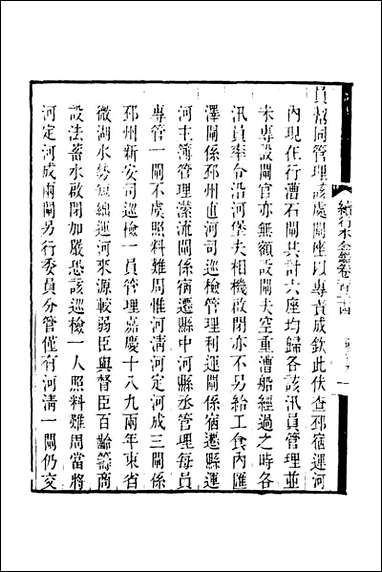 續行水金鑑卷一百二十四
員幫同管理該處閘座以專責成欽此伏查邳宿運河
內現在行漕石閘共計六座均歸各該汛員管理並
未專設閘官亦無額設閘夫空重漕船經過之時各
汛員率令沿河堡夫相機啟閉亦不另給工食內匯
澤閘係邳州直河司巡檢管理利運閘係宿遷縣運
河主簿管理潆流閘係宿遷縣中河縣丞管理每員
專管一閘不虞照料難周惟河清河定河成三閘係
邳州新安司巡檢一員管理嘉慶十八九兩年東省
微湖水勢短絀運河來源較弱臣與督臣百齡籌商
設法蓄水啟閉加嚴恐該巡檢一人照料難周當將
河定河成兩閘另行委員分管僅有河清一閘仍交